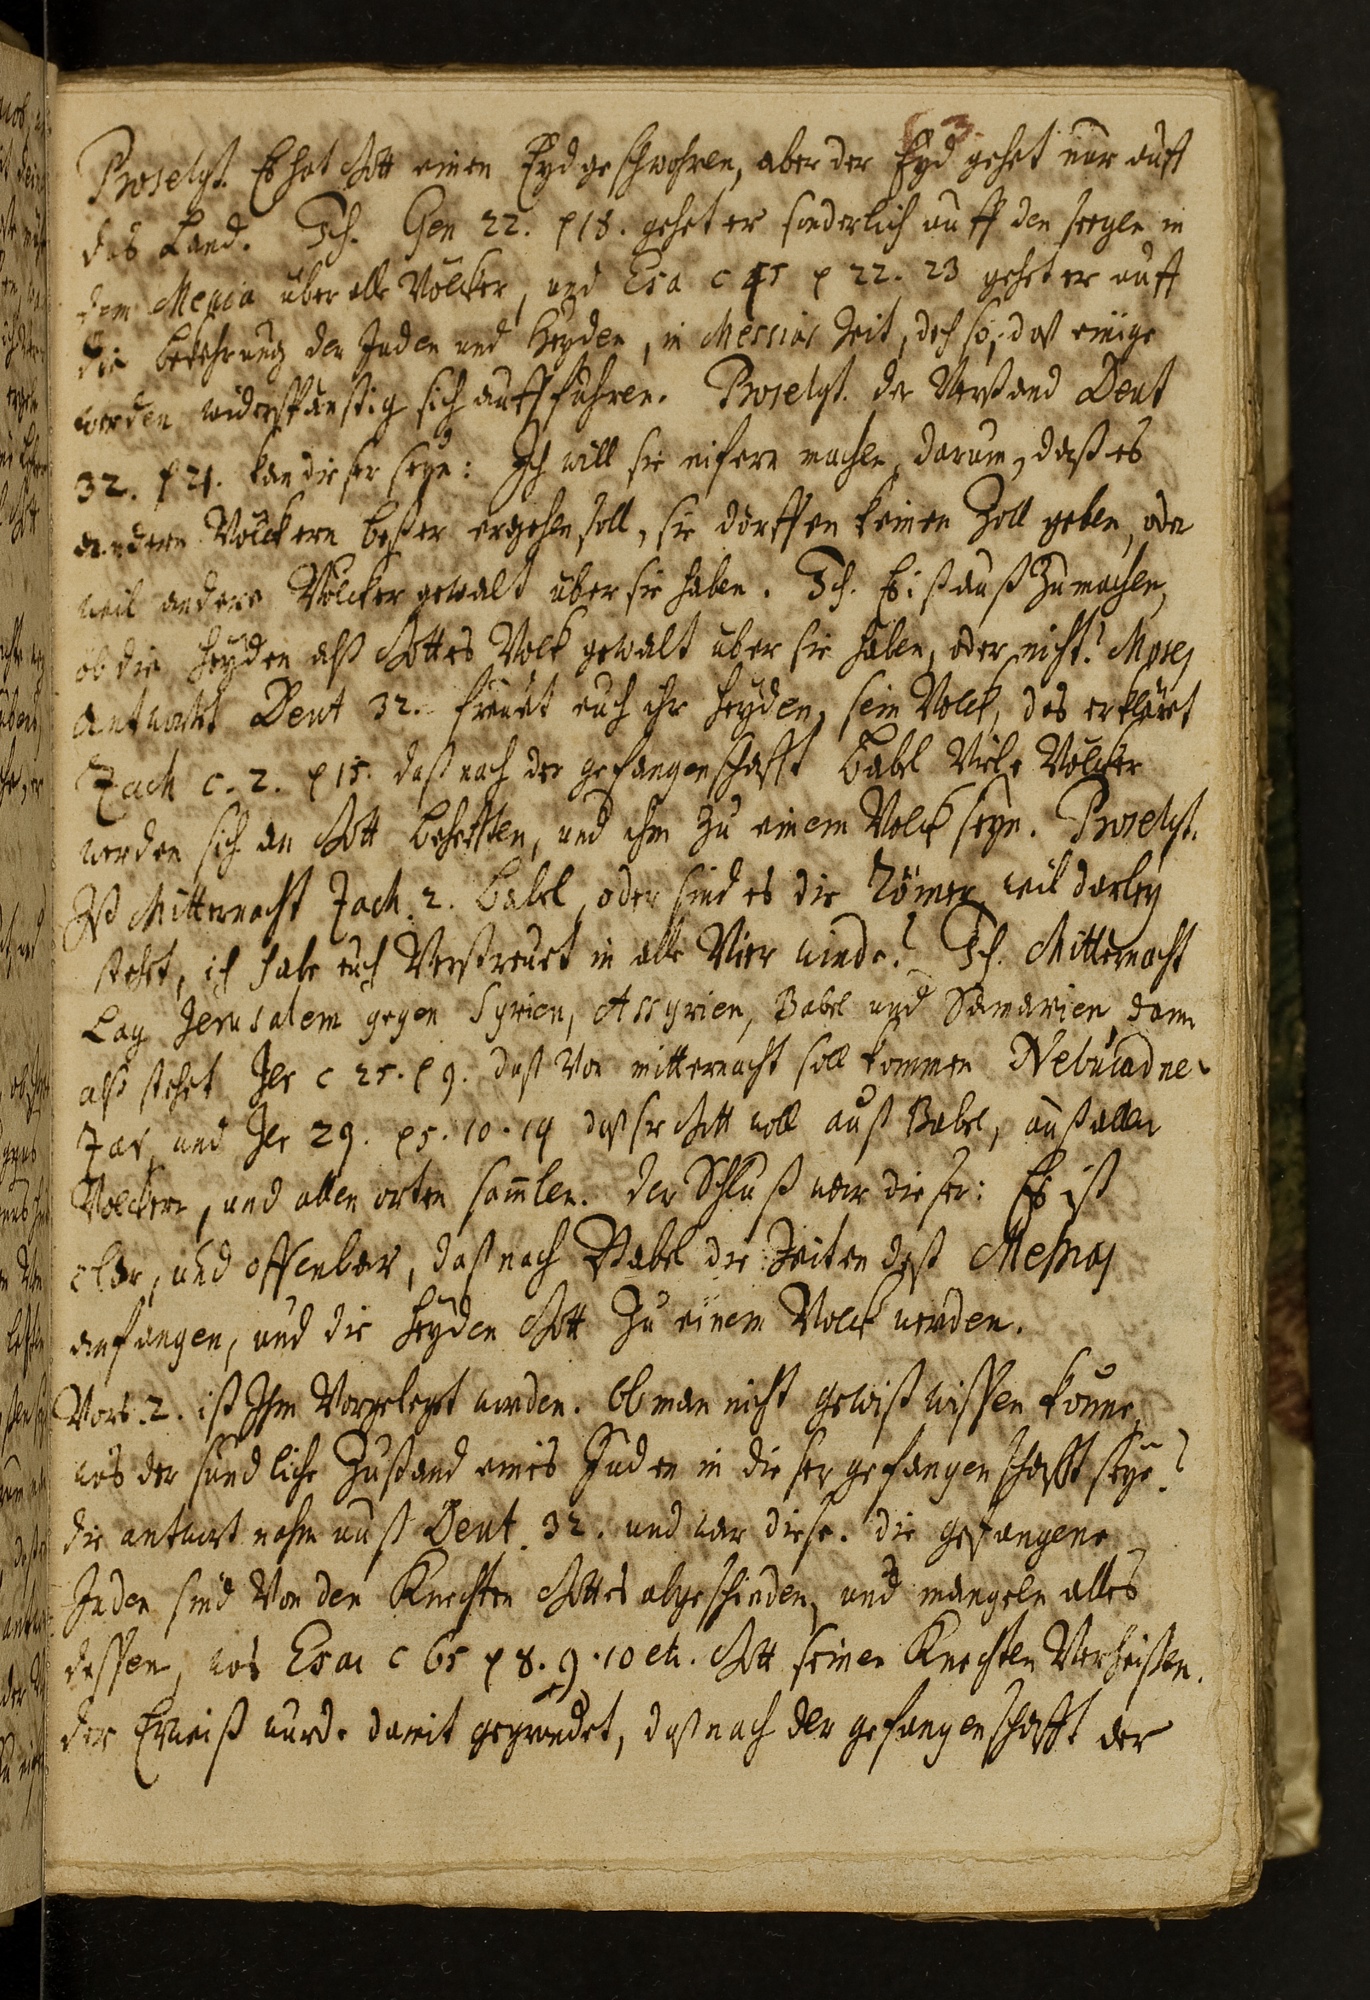 3.
Proselyt. Es hat Gott einen Eyd geschwohren, aber der Eyd gehet nur auff
das Land. Ich. Gen 22. p 18. gehet er sonderlich auff den seegen in
dem Messia über alle Völcker, und Esa c 45 p 22. 23 gehet er auff
die bekehrung der Juden und Heyden, in Messias Zeit, doch so, daß einige
werden widerspänstig sich auffführen. Proselyt. der Verstand Deut
32. p 21. kan dieser seyn: Ich will sie eifern machen, darum, daß es
andern Völckern beßer ergehen soll, sie dörffen keinen Zoll geben, oder
weil andere Völcker gewalt über sie haben. Ich. Es ist auß zu machen,
ob die Heyden alß Gottes Volck gewalt über sie haben, oder nicht? Moses
antwortet Deut 32. freuet euch ihr Heyden, sein Volck, das erkläret
Zach c. 2. p 15. daß nach der gefangenschafft Babel Viele Völcker
werden sich an Gott behefften, und ihm zu einem Volck seyn. Proselyt.
Ist Mitternacht Zach. 2. Babel, oder sind es die Römer, weil darbey
stehet, ich habe euch Verstreuet in alle Vier winde? Ich. Mitternacht
Lag Jerusalem gegen Syrien, Assyrien, Babel und Samarien, dann
alß stehet Jer c 25. p 9. daß Von mitternacht soll kommen Nebucadne-
zar, und Jer 29. p 5. 10. 14 daß sie Gott woll auß Babel, auß allen
Völckern, und allen orten samlen. der Schluß war dieser: Es ist
clar, und offenbar, daß nach Babel die Zeiten deß Messias
anfangen, und die Heyden Gott zu einem Volck werden.
Vors. 2. ist Ihm Vorgelegt worden. Ob man nicht gewiß wissen könne,
was der sündliche Zustand eines Juden in dieser gefangenschafft seye?
die antwort nahm auß Deut. 32. und war diese. die gefangene
Juden sind Von den Knechten Gottes abgeschieden, und mangeln alles
dessen, was Esai c 65 p 8. 9. 10 etc. Gott seinen Knechten Verheissen.
der Erweiß wurde damit gegründet, daß nach der gefangenschafft der